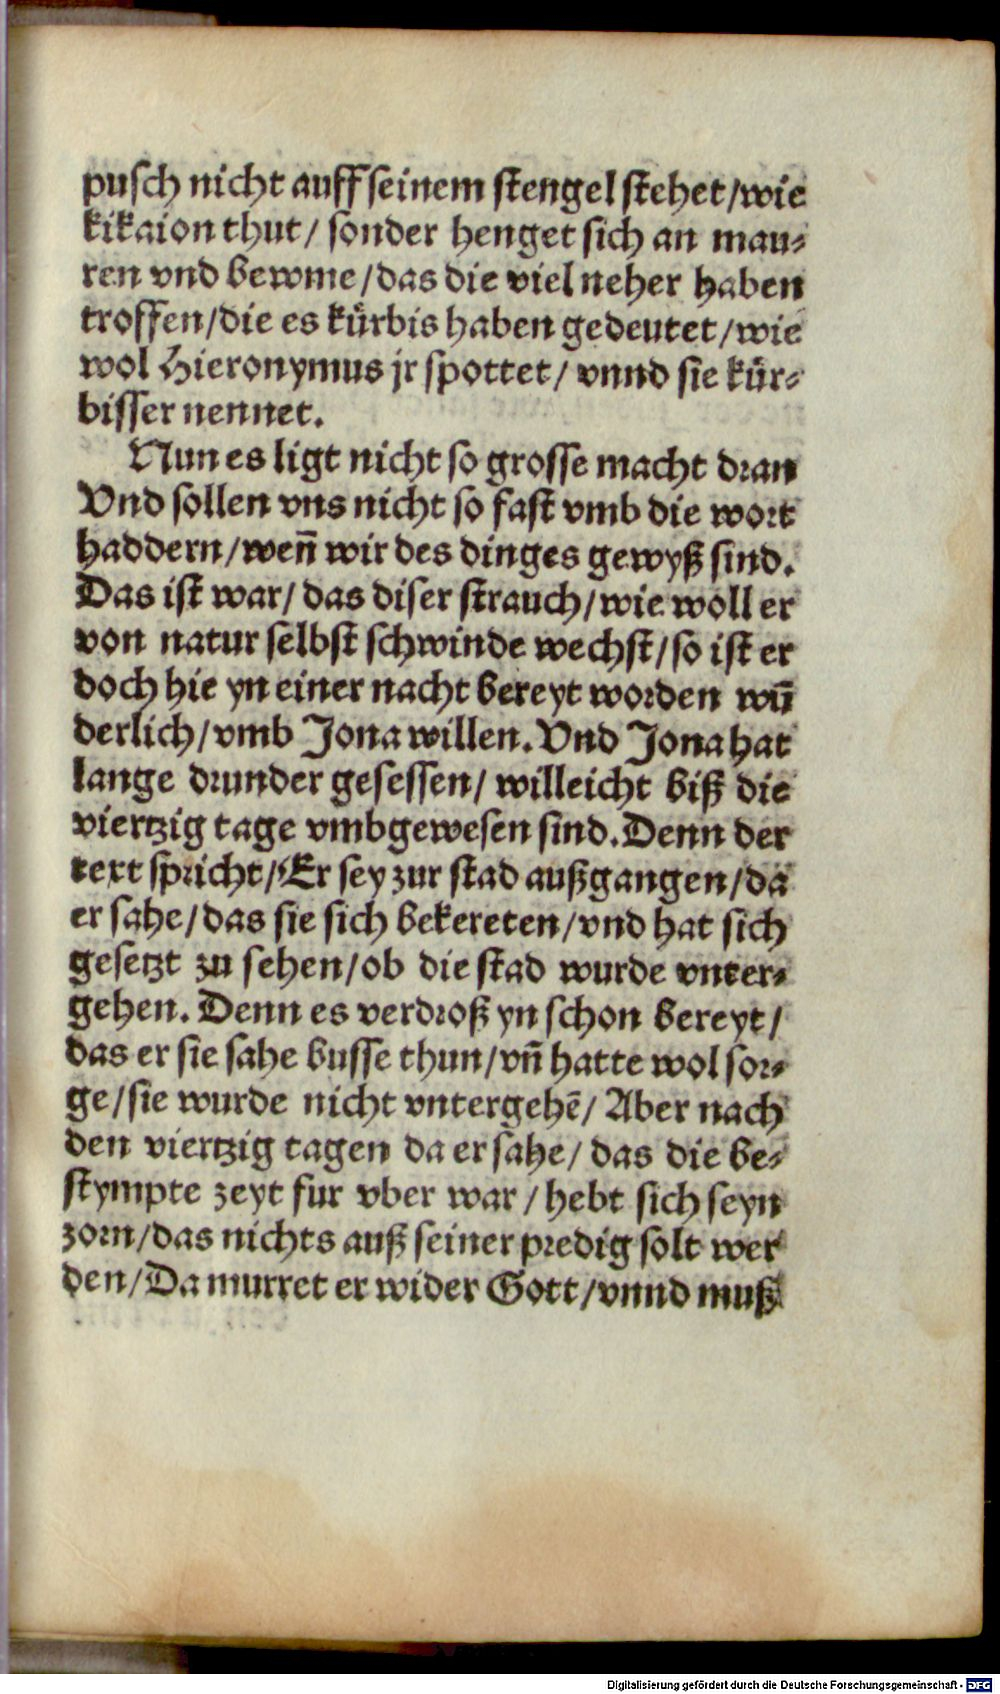 pusch nicht auff seinem stengel stehet/wie
kikaion thut/ sonder henget sich an mau⸗
ren vnd bewme/das die viel neher haben
troffen/die es kuͤrbis haben gedeutet/wie
wol Hieronymus jr spottet/ vnnd sie kuͤr⸗
bisser nennet.
Nun es ligt nicht so grosse macht dran
Vnd sollen vns nicht so fast vmb die wort
haddern/wen̄ wir des dinges gewyß sind.
Das ist war/ das diser strauch/wie woll er
von natur selbst schwinde wechst/so ist er
doch hie yn einer nacht bereyt worden wū
derlich/vmb Jona willen. Vnd Jona hat
lange drunder gesessen/ willeicht biß die
viertzig tage vmbgewesen sind. Denn der
text spricht/Er sey zur stad außgangen/da
er sahe/das sie sich bekereten/vnd hat sich
gesetzt zu sehen/ob die stad wurde vnter⸗
gehen. Denn es verdroß yn schon bereyt/
das er sie sahe busse thun/vn̄ hatte wol sor⸗
ge/sie wurde nicht vntergehē/ Aber nach
den viertzig tagen da er sahe/ das die be⸗
stympte zeyt fur vber war/hebt sich seyn
zorn/das nichts auß seiner predig solt wer
den/Da murret er wider Gott/vnnd muß
Digitalisierung gefördert durch die Deutsche Forschungsgemeinschaft - DFG